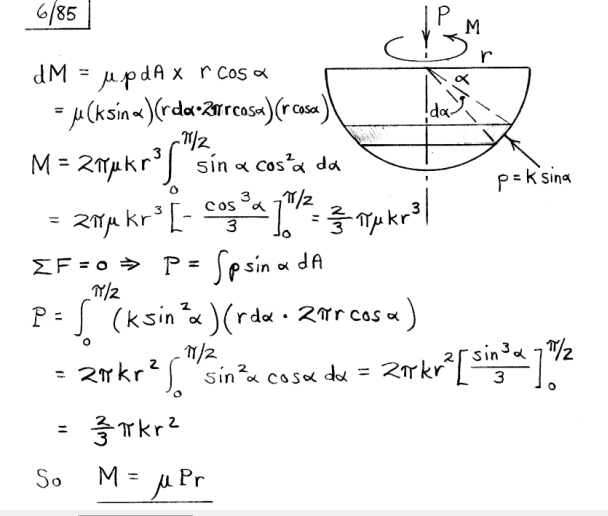 6/85
P
M
r
α
dα
p = k sinα
dM = μ p dA x r cos α
= μ(k sin α)(r dα · 2πr cosα)(r cosα)
M = 2πμkr³ ∫₀^π/2 sin α cos²α dα
= 2πμkr³ [- cos³α / 3]₀^π/2 = 2/3 πμkr³
ΣF = 0 ⇒ P = ∫p sin α dA
P = ∫₀^π/2 (k sin²α)(r dα · 2πr cos α)
= 2πkr² ∫₀^π/2 sin²α cosα dα = 2πkr² [sin³α / 3]₀^π/2
= 2/3 πkr²
So M = μPr